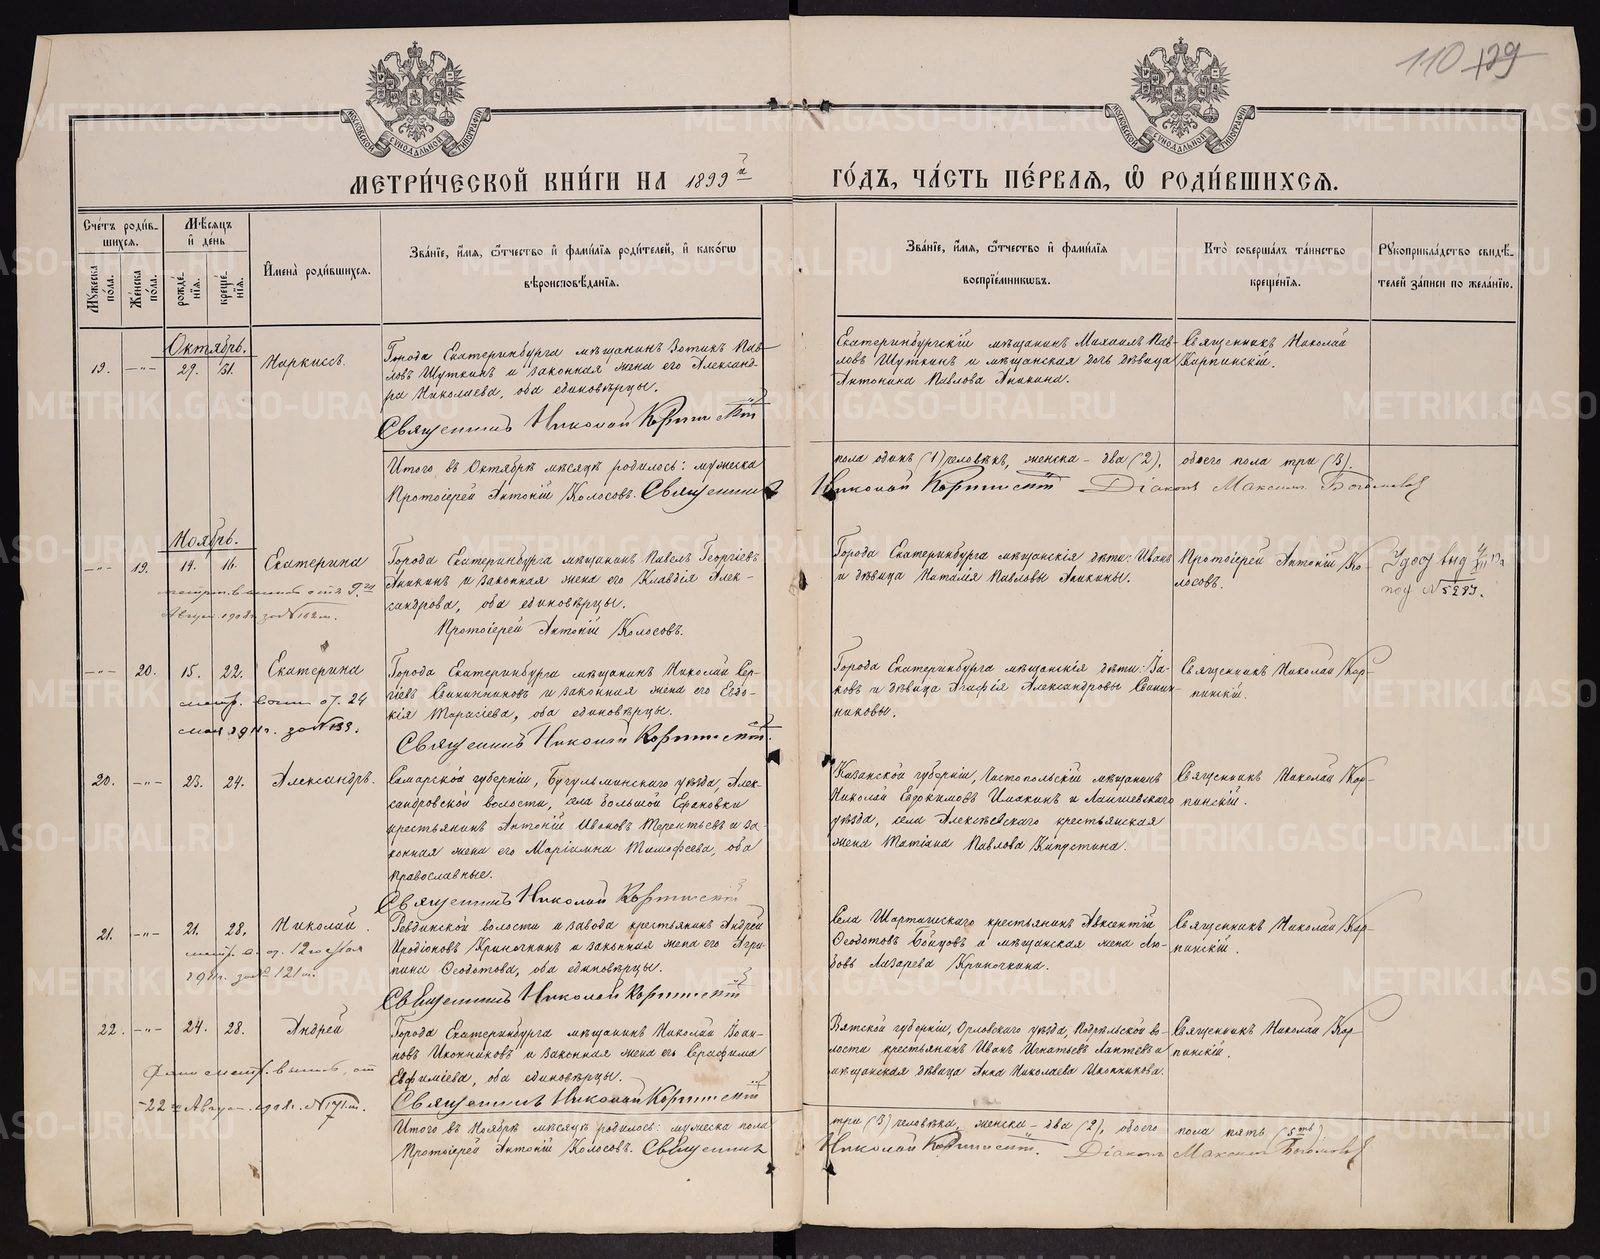 110 129
МОСКОВСКОЙ СѴНОДАЛЬНОЙ ТИПОГРАФІИ
МОСКОВСКОЙ СѴНОДАЛЬНОЙ ТИПОГРАФІИ
МЕТРИ́ЧЕСКОЙ КНИ́ГИ НА 1899й
ГО́ДЪ, ЧА́СТЬ ПЕ́РВАѦ, Ѡ҆ РОДИ́ВШИХСѦ.
Сче́тъ роди́в-
шихсѧ.
Мужеска по́ла.
Же́нска по́ла.
Мѣ́сѧцъ
и҆ день
рожде́нїѧ.
креще́нїѧ.
И҆мена̀ роди́вшихсѧ.
Зва́нїе, и҆́мѧ, ѻ҆́тчество и҆ фами́лїѧ роди́телей, и҆ како́гѡ
вѣроисповѣ́данїѧ.
Зва́нїе, и҆́мѧ, ѻ҆́тчество и҆ фами́лїѧ
воспрїе́мникѡвъ.
Кто̀ соверша́лъ та́инство
креще́нїѧ.
Рукоприкла́дство свидѣ́-
телей за́писи по жела́нїю.
Октябрь.
19. —"— 29. 31. Наркиссъ.
Города Екатеринбурга мѣщанинъ Зотикъ Пав-
ловъ Шуткинъ и законная жена его Александ-
ра Николаева, оба единовѣрцы.
Священникъ Николай Карпинскій
Екатеринбургскій мѣщанинъ Михаилъ Пав-
ловъ Шуткинъ и мѣщанская дочь дѣвица
Антонина Павлова Аникина.
Священникъ Николай
Карпинскій.
Итого въ Октябрѣ мѣсяцѣ родилось: мужеска
пола одинъ (1) человѣкъ, женска – два (2), обоего пола три (3).
Протоіерей Антоній Колосовъ. Священникъ
Николай Карпинскій Діаконъ Максимъ Богомолов
Ноябрь.
—"— 19. 14. 16. Екатерина
Августа 1908 г. за № 162 м.
Города Екатеринбурга мѣщанинъ Павелъ Георгіевъ
Аникинъ и законная жена его Клавдія Алек-
сандрова, оба единовѣрцы.
Протоіерей Антоній Колосовъ.
Города Екатеринбурга мѣщанскія дѣти: Иванъ
и дѣвица Наталія Павловы Аникины.
Протоіерей Антоній Ко-
лосовъ.
под № 5287.
—"— 20. 15. 22. Екатерина
метр. вып. от. 24
мая 1911 г. за № 133.
Города Екатеринбурга мѣщанинъ Николай Сер-
гіевъ Свининниковъ и законная жена его Евдо-
кія Тарасіева, оба единовѣрцы.
Священникъ Николай Карпинскій.
Города Екатеринбурга мѣщанскія дѣти: Яа-
ковъ и дѣвица Агафія Александровы Свинин-
никовы.
Священникъ Николай Кар-
пинскій.
20. —"— 23. 24. Александръ.
Самарской губерніи, Бугульминскаго уѣзда, Алек-
сандровской волости, села большой Ефановки
крестьянинъ Антоній Ивановъ Терентьевъ и за-
конная жена его Маріамна Тимофеева, оба
православные.
Священникъ Николай Карпинскій
Казанской губерніи, Чистопольскій мѣщанинъ
Николай Евдокимовъ Имакинъ и Лаишевскаго
уѣзда, села Алексѣевскаго крестьянская
жена Татіана Павлова Капустина.
Священникъ Николай Кар-
пинскій.
21. —"— 21. 28. Николай.
1911 г. за № 121 м.
Ревдинской волости и завода крестьянинъ Андрей
Иродіоновъ Криночкинъ и законная жена его Агри-
пина Ѳеодотова, оба единовѣрцы.
Священникъ Николай Карпинскій
Села Шарташскаго крестьянинъ Авксентій
Ѳеодотовъ Бойцовъ и мѣщанская жена Лю-
бовь Лазарева Криночкина.
Священникъ Николай Кар-
пинскій.
22. —"— 24. 28. Андрей
22 Август. 1908 г. № 171 м.
Города Екатеринбурга мѣщанинъ Николай Іоан-
новъ Иконниковъ и законная жена его Серафима
Евфиміева, оба единовѣрцы.
Священникъ Николай Карпинскій
Вятской губерніи, Орловскаго уѣзда, Подрѣльской во-
лости крестьянинъ Иванъ Игнатьевъ Лаптевъ и
мѣщанская дѣвица Анна Николаева Иконникова.
Священникъ Николай Кар-
пинскій.
Итого въ Ноябрѣ мѣсяцѣ родилось: мужеска пола
три (3) человѣка, женска – два (2), обоего пола пять (5ть)
Протоіерей Антоній Колосовъ. Священникъ
Николай Карпинскій. Діаконъ Максимъ Богомолов
METRIKI.GASO-URAL.RU